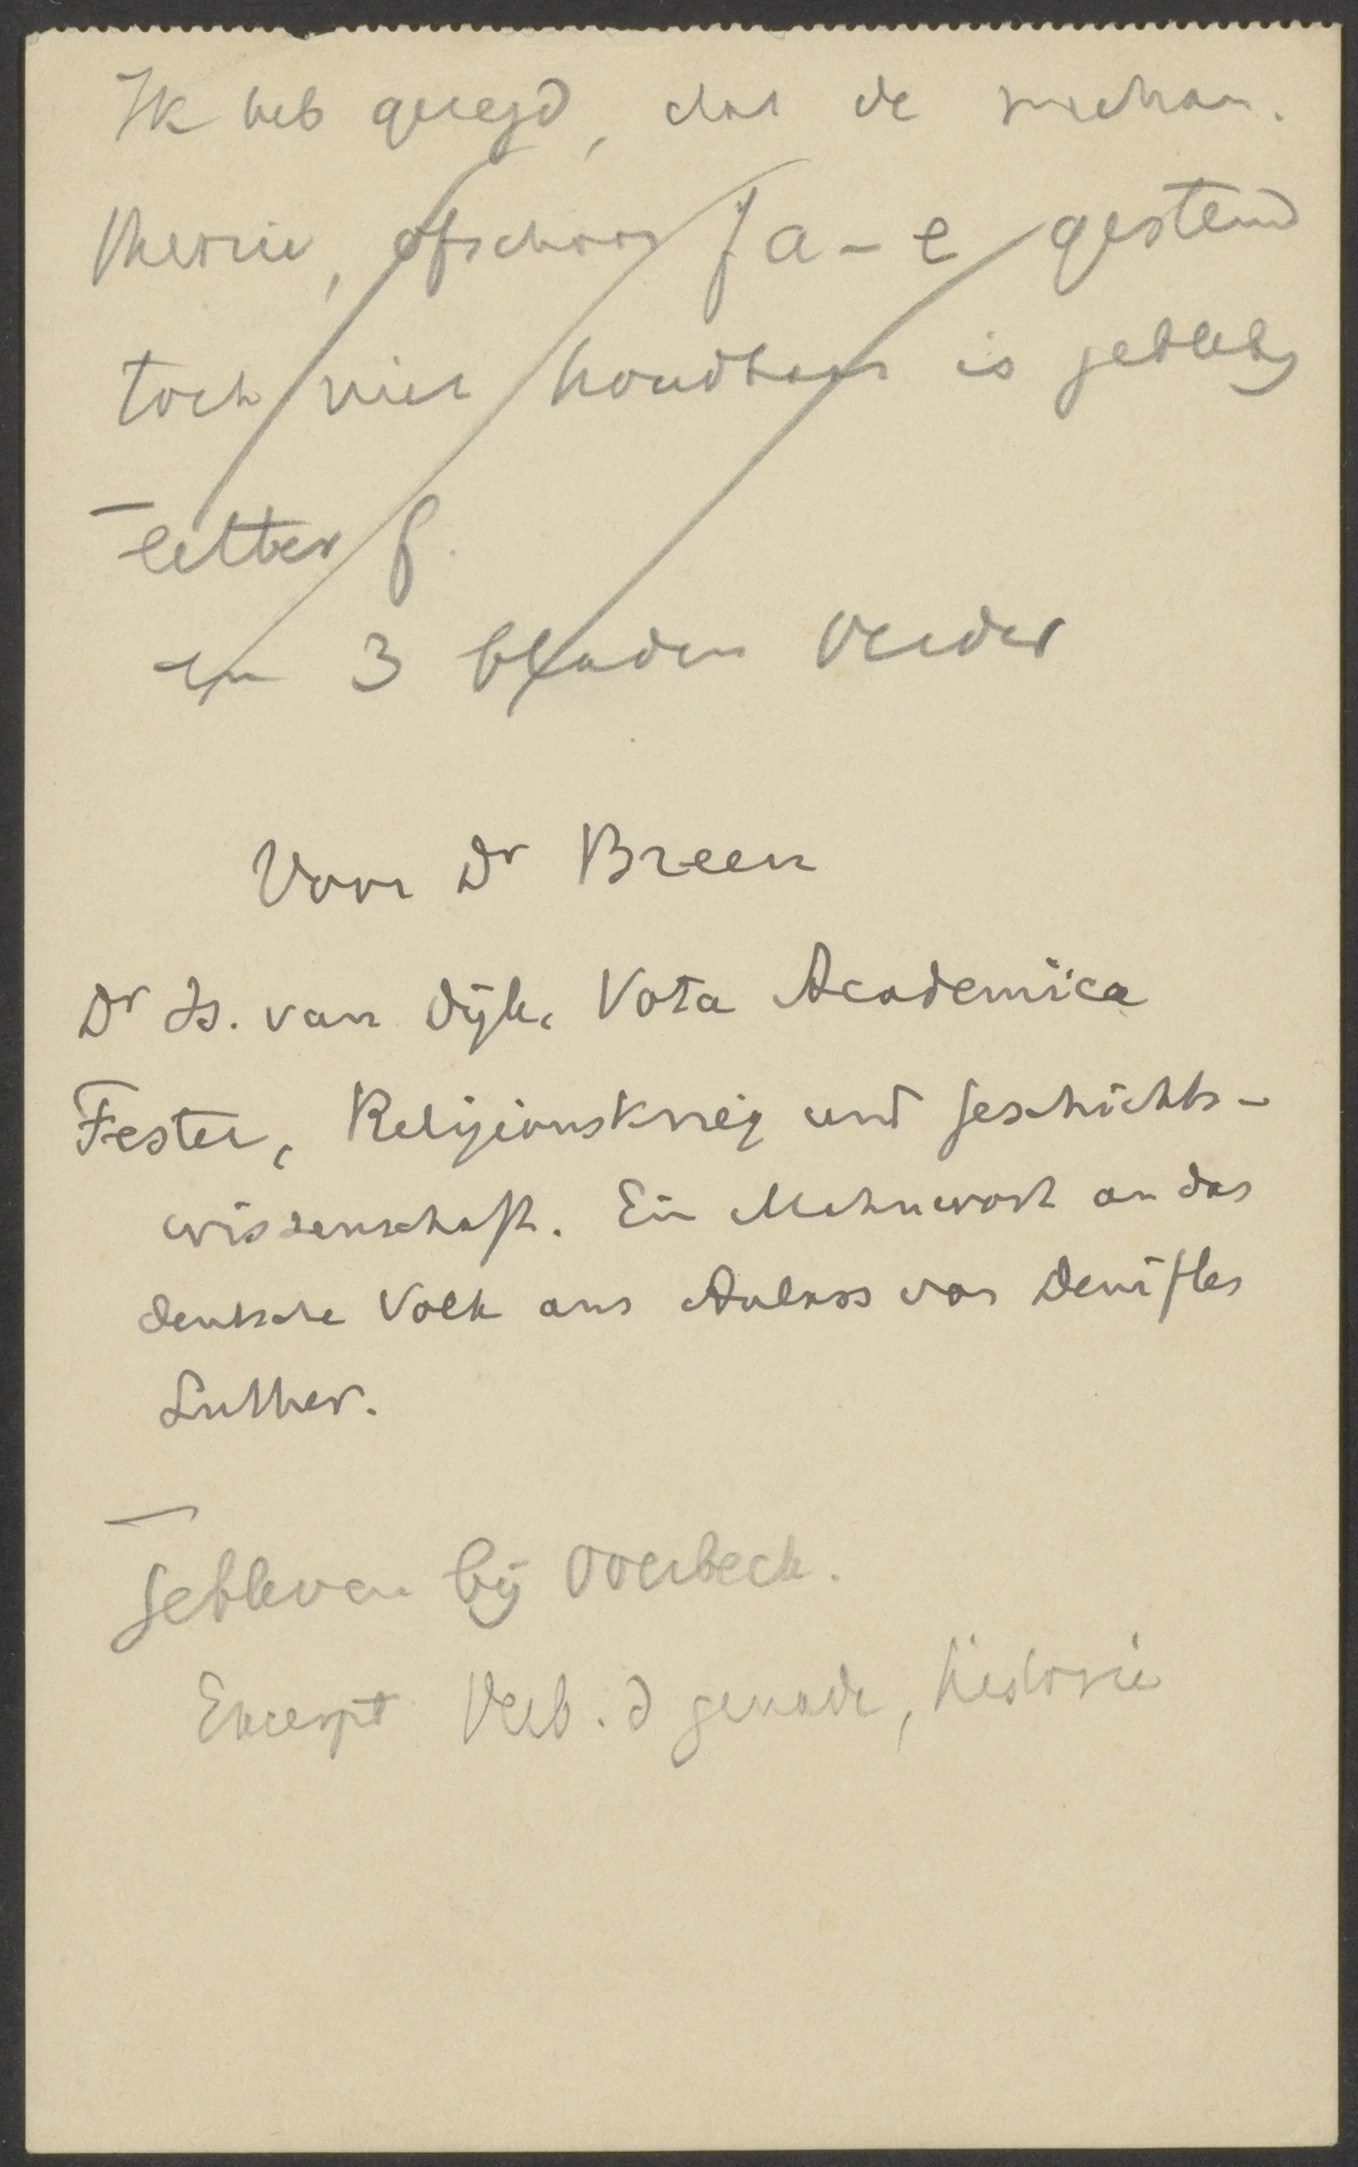 Ik heb gezegd, dat de mechan.
theorie, ofschoon f a - e gesteund
toch niet houdbaar is gebleken
letter f.
en 3 bladen verder
Voor Dr Breen
Dr Is. van Dijk, Vota Academica
Fester, Religionskrieg und Geschichts-
wissenschaft. Ein Mahnwort an das
deutsche Volk aus Anlass von Denifles
Luther.
Gebleven bij Overbeck.
Excerpt Verb. d genade, historie